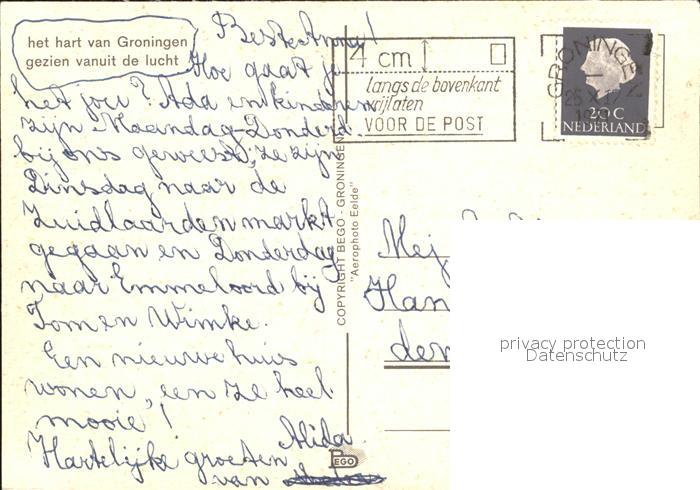 het hart van Groningen
gezien vanuit de lucht
Beste Anny!
Hoe gaat je
het joei? Ada en kinderen
zijn Maandag-Donderd.
bij ons geweest, ze zijn
Dinsdag naar de
Zuidlaardenmarkt
gegaan en Donderdag
naar Emmeloord bij
Tom en Wimke.
Een nieuwe huis
wonen, een ze heel
mooie!
Alida.
Hartelijke groeten
van
COPYRIGHT BEGO - GRONINGEN
"Aerophoto Eelde"
BEGO
4 cm
langs de bovenkant
vrijlaten
VOOR DE POST
GRONINGEN
20 C
NEDERLAND
Mej
Han
den
privacy protection
Datenschutz